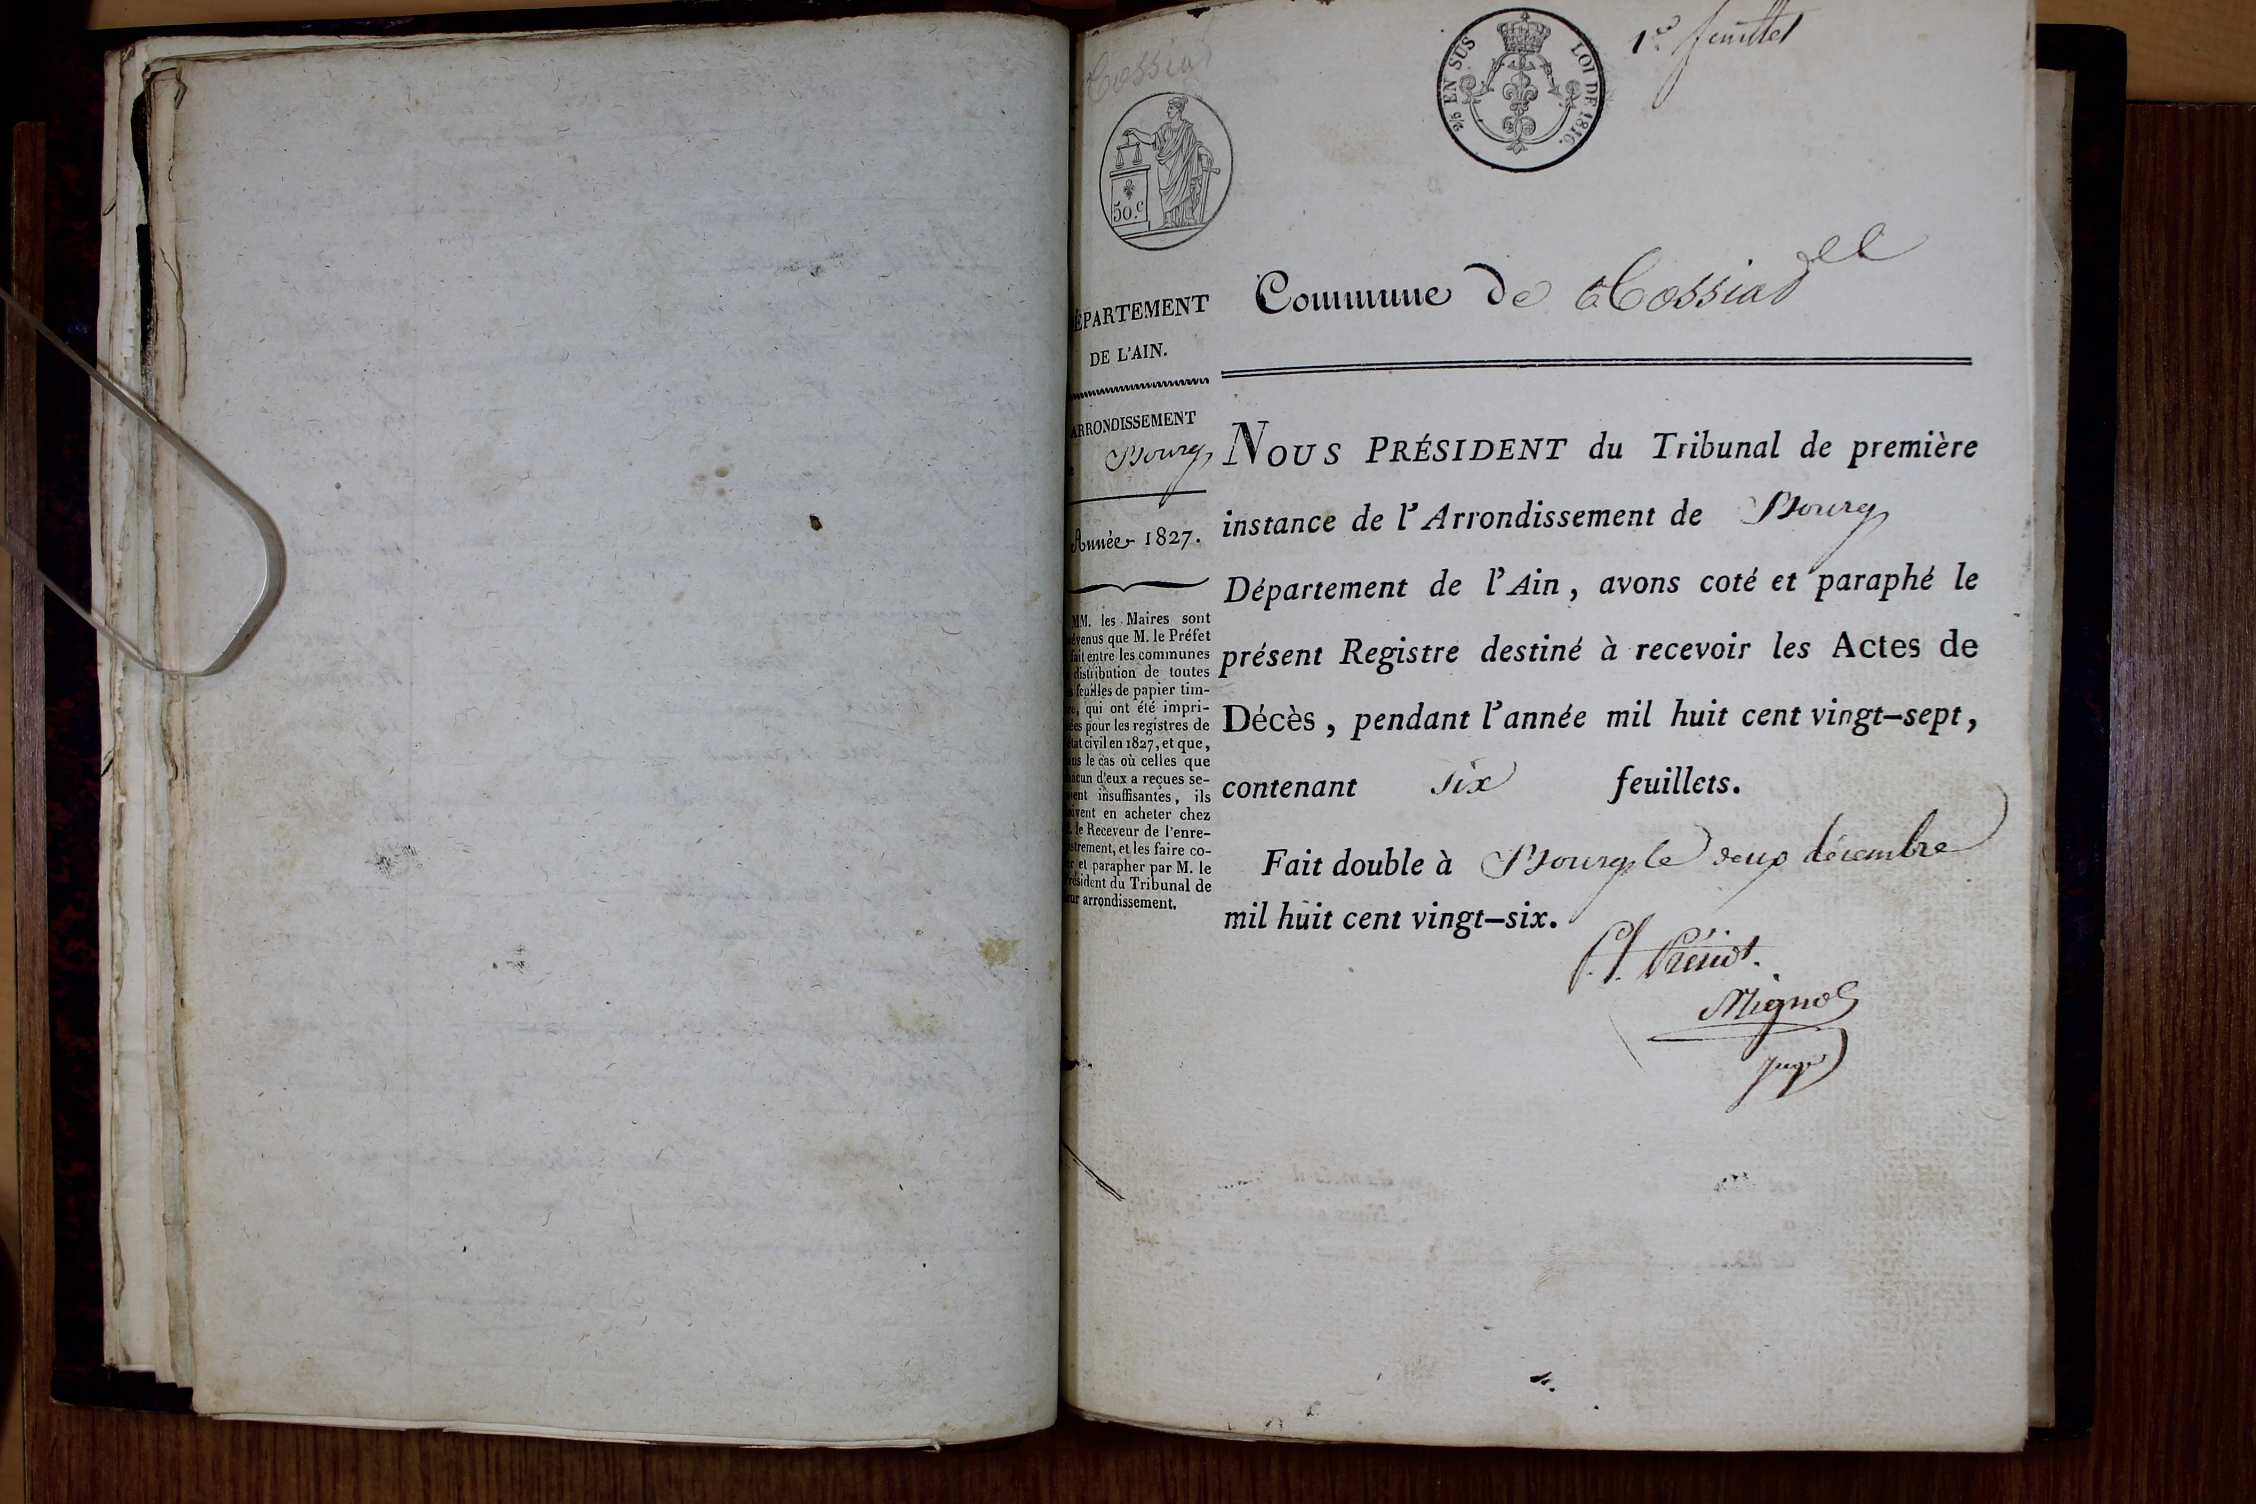 1er feuillet
2/5 EN SUS
LOI DE 1816.
50.c
Commune de Tossiat
ÉPARTEMENT
DE L'AIN.
ARRONDISSEMENT
Bourg
Année 1827.
MM. les Maires sont
évenus que M. le Préfet
fait entre les communes
distribution de toutes
s feuilles de papier tim-
ré, qui ont été impri-
ées pour les registres de
état civil en 1827, et que,
ns le cas où celles que
acun d'eux a reçues se-
ient insuffisantes, ils
ivent en acheter chez
le Receveur de l'enre-
istrement, et les faire co-
er et parapher par M. le
résident du Tribunal de
eur arrondissement.
NOUS PRÉSIDENT du Tribunal de première
instance de l'Arrondissement de Bourg
Département de l'Ain, avons coté et paraphé le
présent Registre destiné à recevoir les Actes de
Décès, pendant l'année mil huit cent vingt-sept,
contenant six feuillets.
Fait double à Bourg le deux décembre
mil huit cent vingt-six.
Mignot
Juge